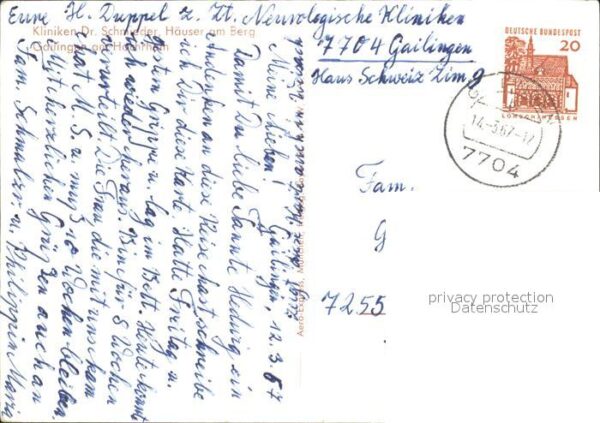 Eure H. Duppel z. Zt. Neurologische Kliniken
7704 Gailingen
Haus Schweiz Zim. 9
Kliniken Dr. Schmieder, Häuser am Berg
Gailingen am Hochrhein
DEUTSCHE BUNDESPOST
20
LORSCH/HESSEN
14.-3.67-17
7704
Gailingen, 12.3.67
Meine Lieben!
Damit Du liebe Tante Hedwig ein
Andenken an diese Reise hast schreibe
ich Dir diese Karte. Hatte Freitag u.
gestern Grippe u. lag im Bett. Heute komme
ich wieder heraus. Bin für 8 Wochen
verurteilt. Die Frau, die mit uns kam
hat M. S. u. muss 18 Wochen bleiben.
Mit herzlichen Grüßen auch an
Fam. Schmalzer u. Philippin Maria
Fam.
G
7255
privacy protection
Datenschutz